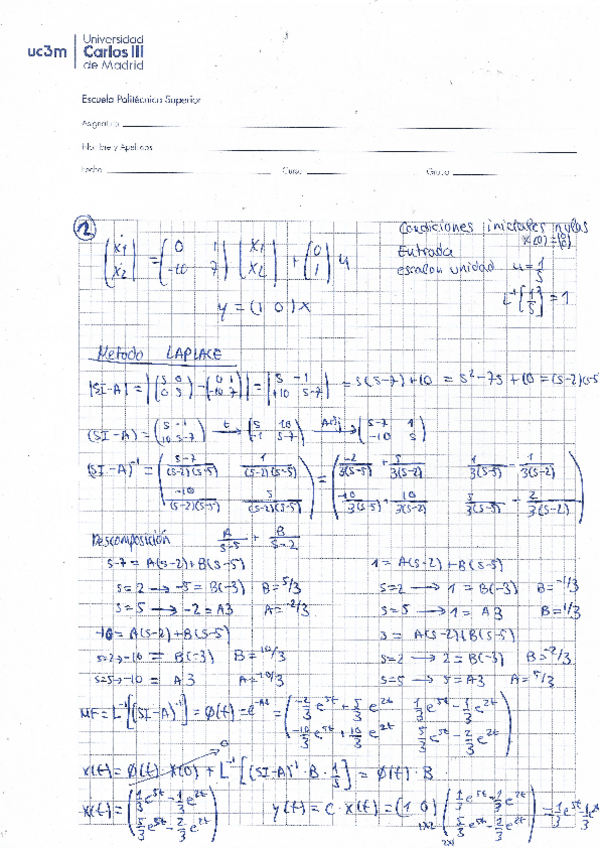 uc3m | Universidad
Carlos III
de Madrid
Escuela Politécnica Superior
Asignatura
Nombre y Apellidos
Fecha Curso Grupo
2
(ẋ1 ; ẋ2) = (0 1 ; -10 7) (x1 ; x2) + (0 ; 1) u
y = (1 0) x
Condiciones iniciales nulas
x(0) = (0)
Entrada
escalon unidad u = 1/s
L⁻¹[1/s] = 1
Metodo LAPLACE
|SI-A| = |(s 0 ; 0 s) - (0 1 ; -10 7)| = |s -1 ; +10 s-7| = s(s-7)+10 = s²-7s+10 = (s-2)(s-5
(SI-A) = (s -1 ; 10 s-7) →t (s 10 ; -1 s-7) →Adj (s-7 1 ; -10 s)
(SI-A)⁻¹ = (s-7/(s-2)(s-5) 1/(s-2)(s-5) ; -10/(s-2)(s-5) s/(s-2)(s-5)) = (-2/3(s-5) + 5/3(s-2) 1/3(s-5) - 1/3(s-2) ; -10/3(s-5) + 10/3(s-2) 5/3(s-5) - 2/3(s-2))
Descomposición A/s-5 + B/s-2
s-7 = A(s-2)+B(s-5)
s=2 → -5 = B(-3) B=5/3
s=5 → -2 = A3 A=-2/3
-10 = A(s-2)+B(s-5)
s=2 → -10 = B(-3) B=10/3
s=5 → -10 = A3 A=-10/3
1 = A(s-2)+B(s-5)
s=2 → 1 = B(-3) B=-1/3
s=5 → 1 = A3 B=1/3
s = A(s-2)+B(s-5)
s=2 → 2 = B(-3) B=-2/3
s=5 → 5 = A3 A=5/3
MF = L⁻¹[(SI-A)⁻¹] = φ(t) = e^-At = (-2/3 e^5t + 5/3 e^2t 1/3 e^5t - 1/3 e^2t ; -10/3 e^5t + 10/3 e^2t 5/3 e^5t - 2/3 e^2t)
x(t) = φ(t)·x(0) + L⁻¹[(SI-A)⁻¹·B·1/s] = φ(t)·B
0
x(t) = (1/3 e^5t - 1/3 e^2t ; 5/3 e^5t - 2/3 e^2t) y(t) = C·x(t) = (1 0) (1/3 e^5t - 1/3 e^2t ; 5/3 e^5t - 2/3 e^2t) = 1/3 e^5t - 1/3 e^2t
1x2 2x1